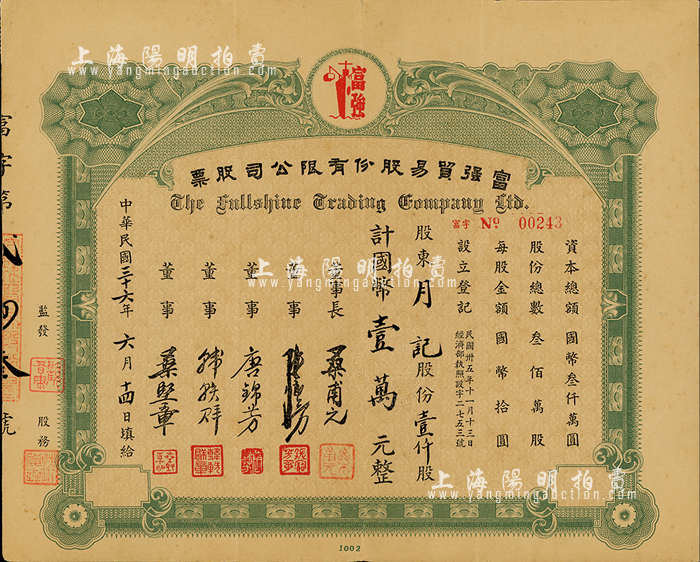 富強
富强貿易股份有限公司股票
The Fullshine Trading Company Ltd.
富字 No 00243
資本總額 國幣叁仟萬圓
股份總數 叁佰萬股
每股金額 國幣拾圓
設立登記 民國卅五年十一月十三日
經濟部執照設字二七五三號
股東 月記 股份壹仟股
計國幣壹萬元整
董事長 桑甫之
董事
董事 唐錦芳
董事
董事 桑堅章
中華民國三十六年 六月 十四日填給
監發 股務
富字第 弍四叁號
1002
上海陽明拍賣
www.yangmingauction.com
上海陽明拍賣
www.yangmingauction.com
上海陽明拍賣
www.yangmingauction.com